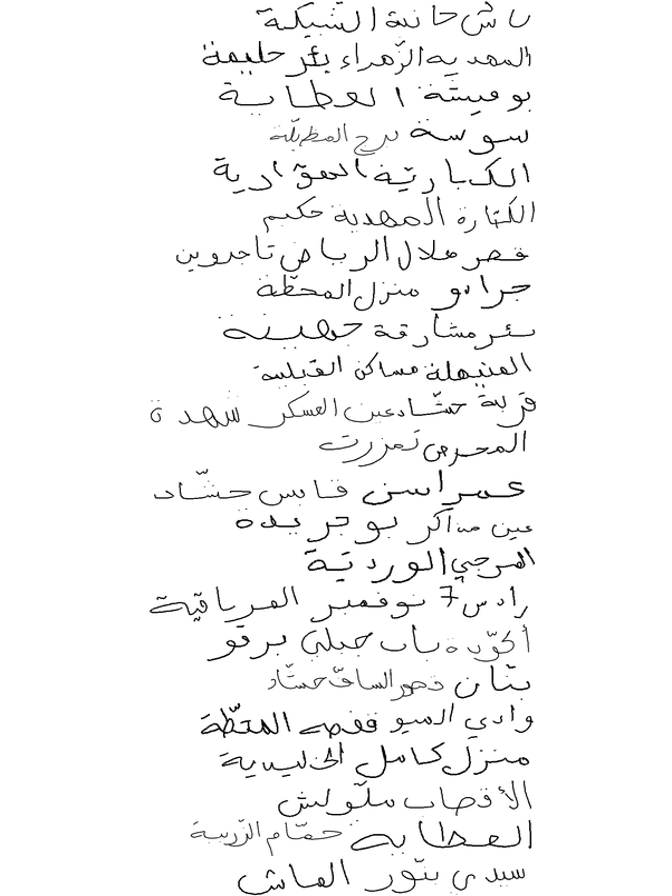 باش حانبة الشبيكة
المهدية الزهراء بئر حليمة
بوميتة العطاية
سوسة برج الطويلة
الكبارية الهوّارية
الكتارة المهدية حكيم
قصر هلال الرياض تاجروين
جرادو منزل المحطّة
بئر مشارقة جهينة
المنيهلة مساكن القبلية
قرية حشّاد عين العسكر شهدة
المحرص تمزرت
عمراسن قابس حشّاد
عين مذاكر بوجريدة
المرجى الورديّة
رادس 7 نوفمبر المرناقية
أكوّدة باب جبلي برقو
بنّان قصور الساف حشّاد
وادي السيو قفصة المحطّة
منزل كامل الخليدية
الأقصاب ملّولش
العطاية حمّام الزريبة
سيدي بنّور الماش